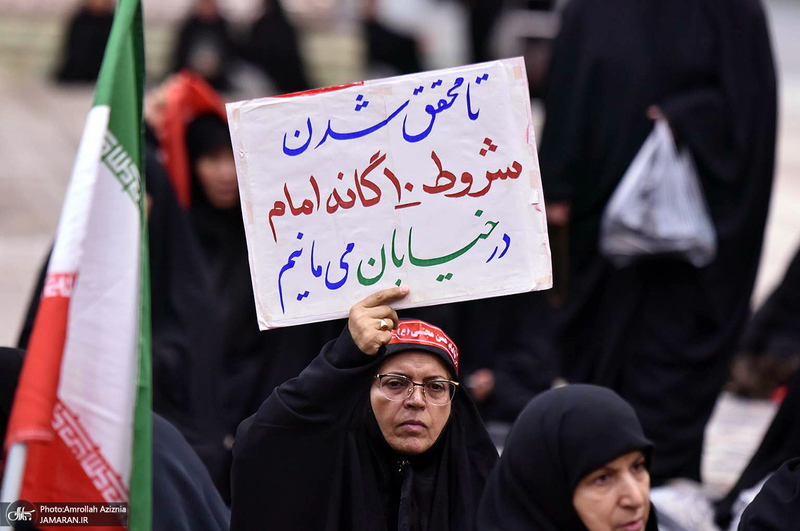 تا محقق شدن
شروط ۱۰ گانه امام
در خیابان می مانیم
Photo:Amrollah Aziznia
JAMARAN.IR